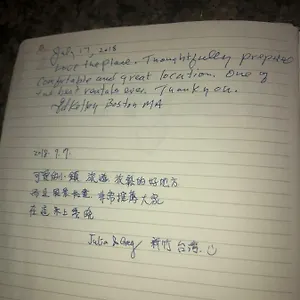 July 17, 2018
Love the place. Thoughtfully prepared
Comfortable and great location. One of
best rentals ever. Thank you.
Boston MA
2018. 7. 7.
可愛的小鎮 浪漫 放鬆的好地方
風景 非常推薦大家
在這 上
Julia & Greg 新竹 台灣